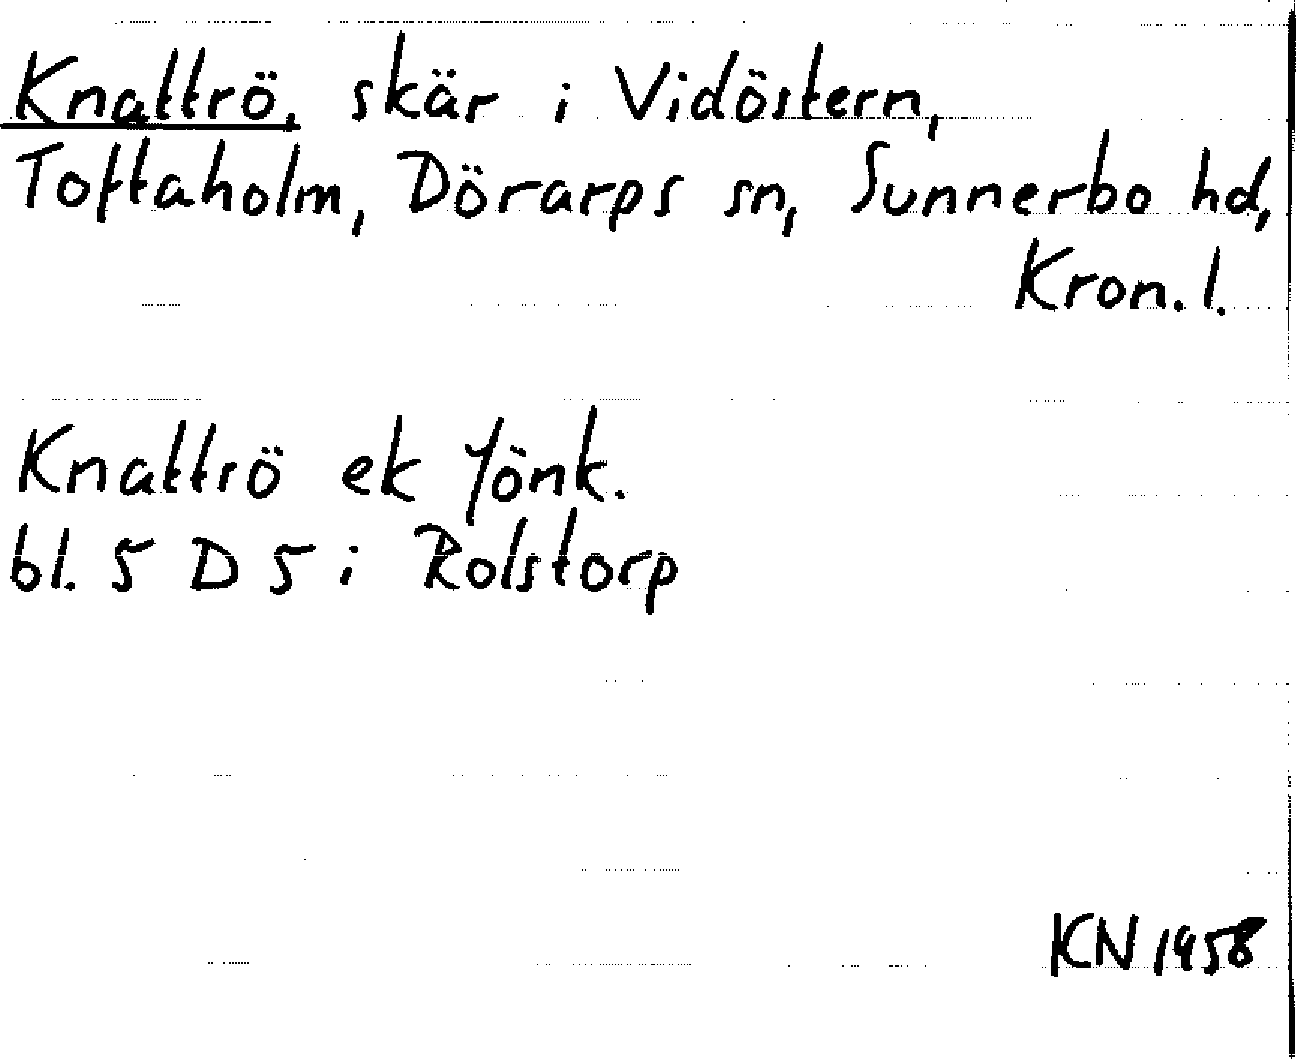 Knattrö, skär i Vidöstern,
Toftaholm, Dörarps sn, Sunnerbo hd,
Kron. l.
Knattrö ek Jönk.
bl. 5 D 5 i Rolstorp
KN 1958